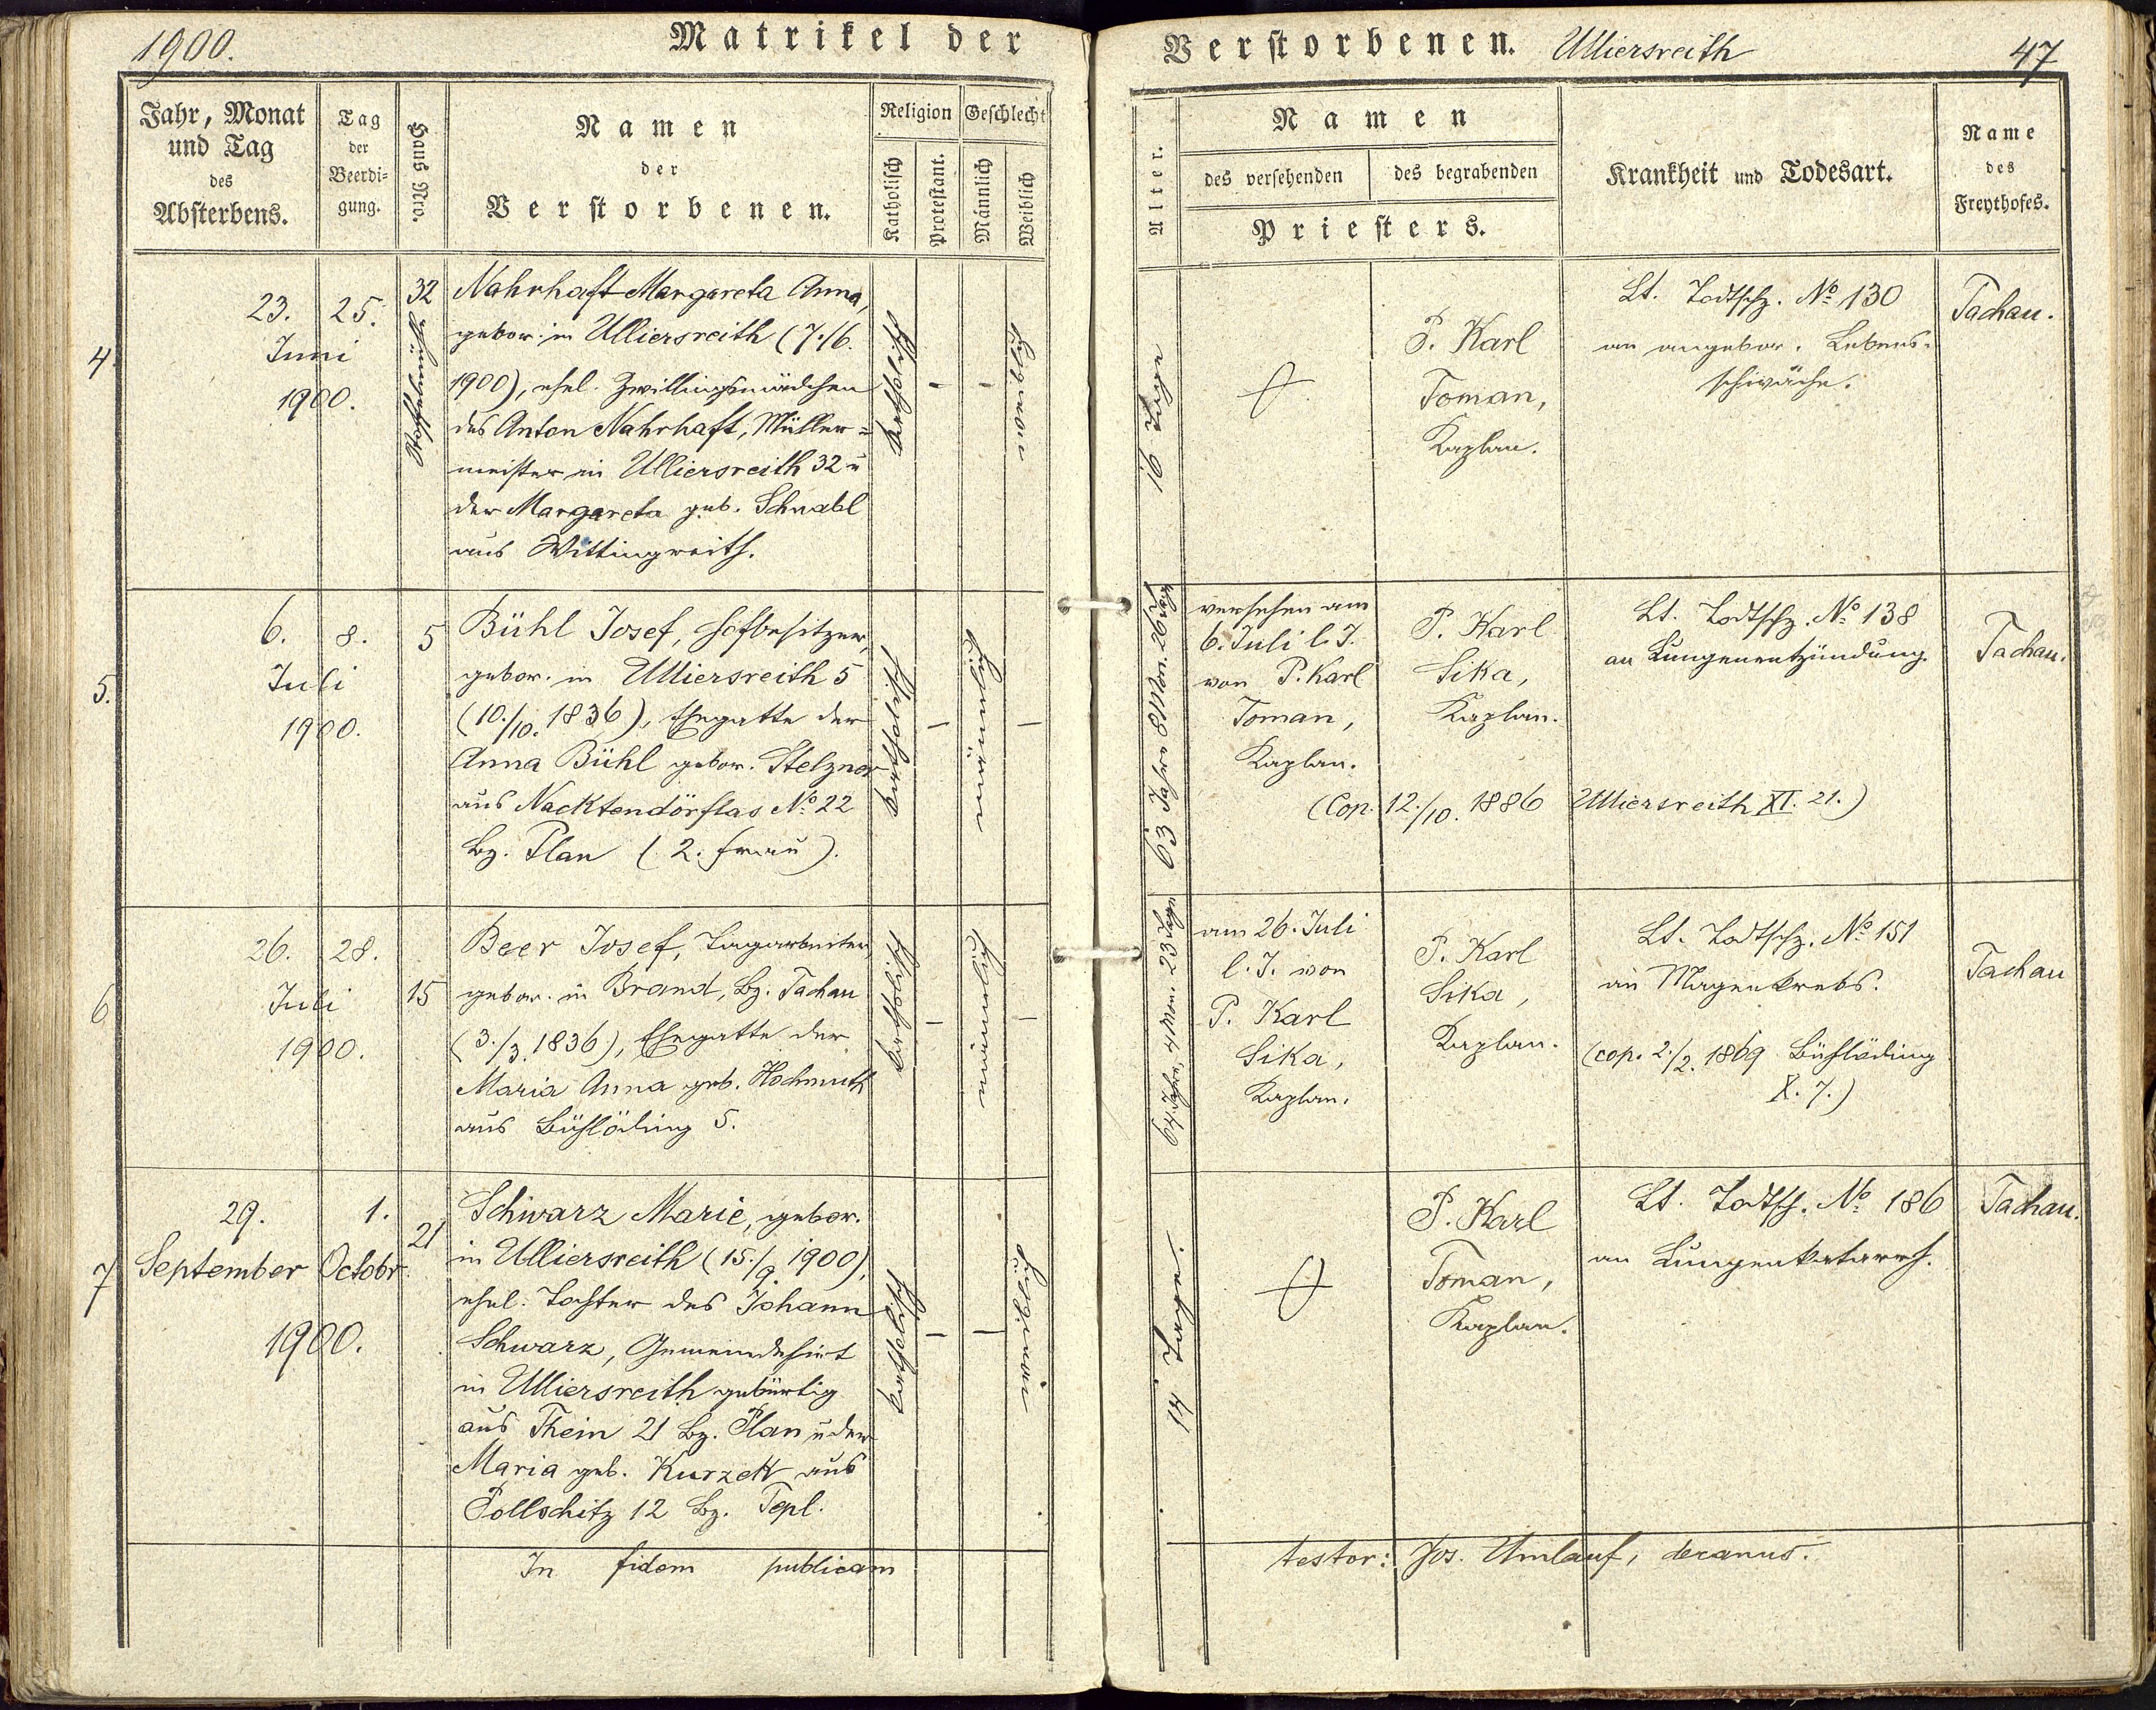 1900.
Matrikel der
Jahr, Monat
und Tag
des
Absterbens.
Tag
der
Beerdi=
gung.
Haus Nro.
Namen
der
Verstorbenen.
Religion
Katholisch
Protestant.
Geschlecht
Männlich
Weiblich
4.
23.
Juni
1900.
25.
32
Nahrhaft Margareta Anna,
gebor. in Ulliersreith (7./6.
1900), ehel. Zwillingsmädchen
des Anton Nahrhaft, Müller=
meister in Ulliersreith 32 u
der Margareta geb. Schnabl
aus Wittingreith.
katholisch
–
–
weiblich
5.
6.
Juli
1900.
8.
5
Bühl Josef, Hofbesitzer,
gebor. in Ulliersreith 5
(10./10. 1836), Ehegatte der
Anna Bühl gebor. Stelzner
aus Nacktendörflas No 22
Bz. Plan (2. Frau).
katholisch
–
männlich
–
6
26.
Juli
1900.
28.
15
Beer Josef, Tagarbeiter,
gebor. in Brand, Bz. Tachau
(3./3. 1836), Ehegatte der
Maria Anna geb. Hochmuth
aus Bühlöding 5.
katholisch
–
männlich
–
7
29.
September
1900.
1.
Octobr.
21
Schwarz Marie, gebor.
in Ulliersreith (15./9. 1900),
ehel. Tochter des Johann
Schwarz, Gemeindehirt
in Ulliersreith gebürtig
aus Thein 21 Bz. Plan u der
Maria geb. Kurzek aus
Pollschitz 12 Bz. Tepl.
katholisch
–
–
weiblich
In fidem publicam
Verstorbenen. Ulliersreith
47
Alter.
Namen
des versehenden
des begrabenden
Priesters.
Krankheit und Todesart.
Name
des
Freythofes.
16 Tage
P. Karl
Toman,
Kaplan.
Lt. Todtschz. No 130
an angebor. Lebens=
schwäche.
Tachau.
63 Jahre 8 Mon. 26 Tage
versehen am
6. Juli l. J.
von P. Karl
Toman,
Kaplan.
P. Karl
Sika,
Kaplan.
Lt. Todtschz. No 138
an Lungenentzündung.
Tachau.
(Cop. 12./10. 1886 Ulliersreith XI. 21.)
64 Jahre, 4 Mon. 23 Tage
am 26. Juli
l. J. von
P. Karl
Sika,
Kaplan.
P. Karl
Sika,
Kaplan.
Lt. Todtschz. No 151
an Magenkrebs.
(cop. 2./2. 1869 Bühlöding
X. 7.)
Tachau
14 Tage.
P. Karl
Toman,
Kaplan.
Lt. Todtsch. No 186
an Lungenkatarrh.
Tachau.
testor: Jos. Umlauf, decanus.